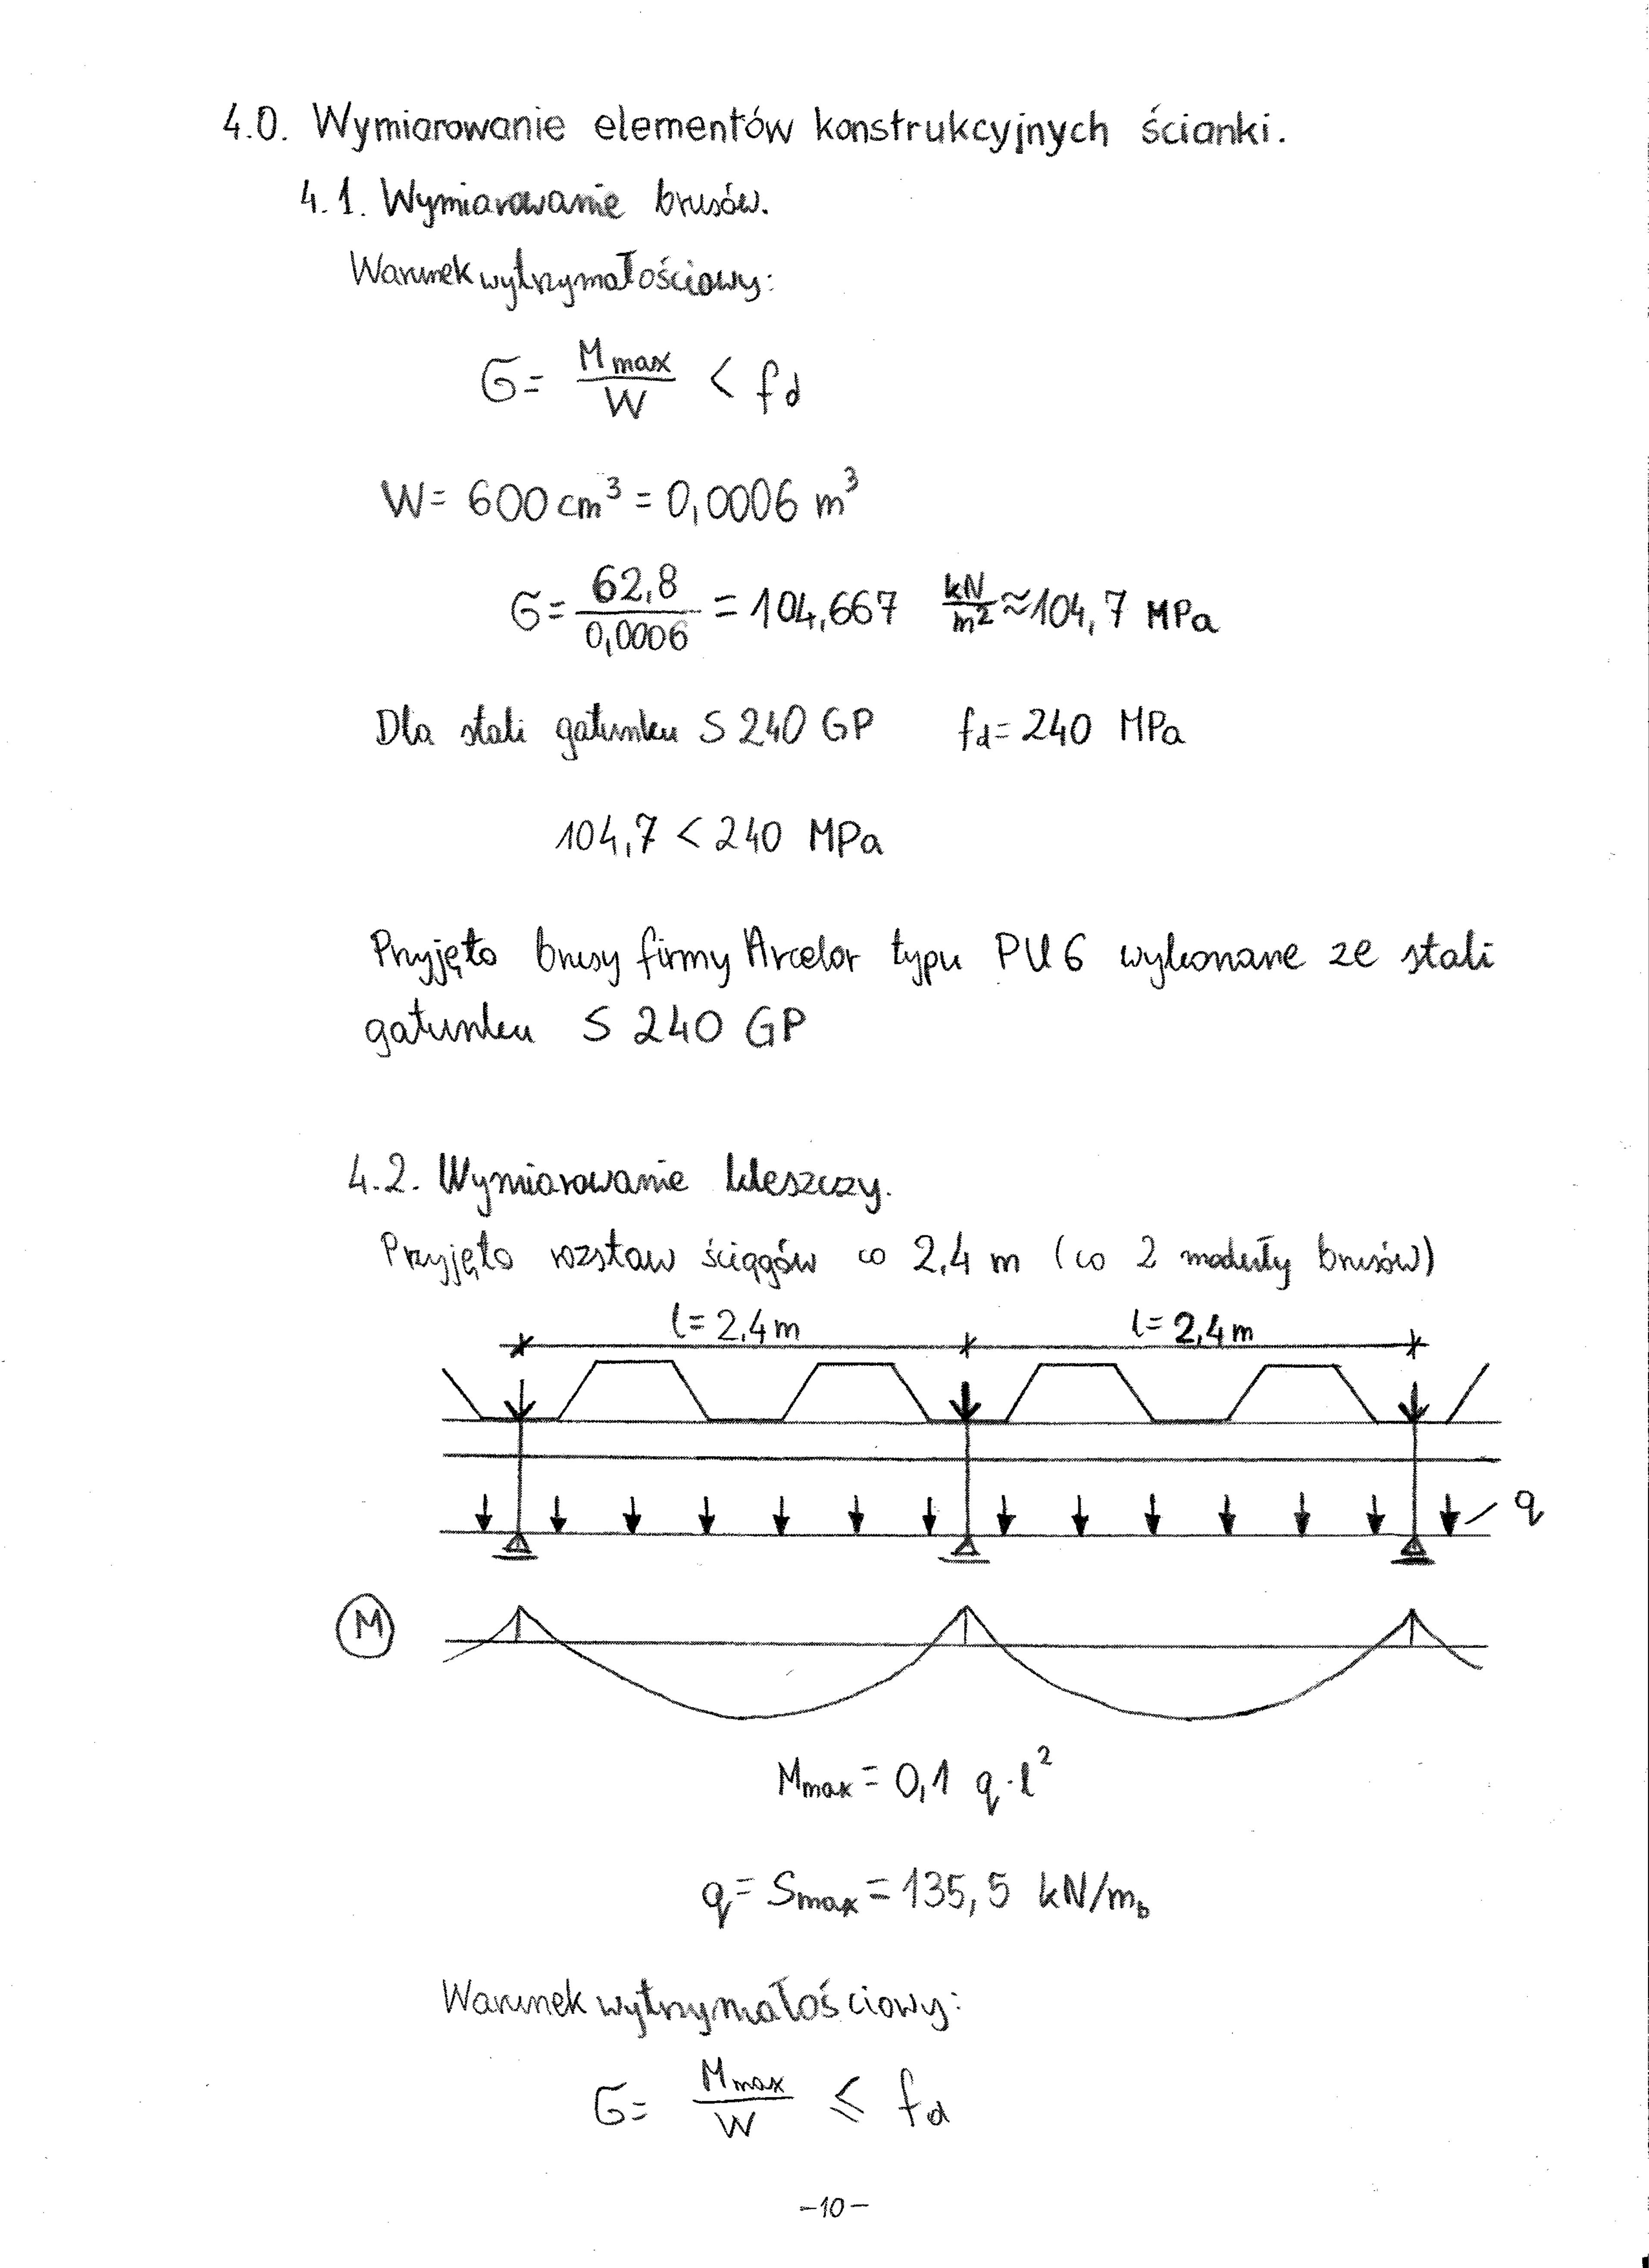 4.0. Wymiarowanie elementów konstrukcyjnych ścianki.
4.1. Wymiarowanie brusów.
Warunek wytrzymałościowy:
G = M max / W < fd
W = 600 cm³ = 0,0006 m³
G = 62,8 / 0,0006 = 104,667 kN/m² ≈ 104,7 MPa
Dla stali gatunku S 240 GP fd = 240 MPa
104,7 < 240 MPa
Przyjęto brusy firmy Arcelor typu PU 6 wykonane ze stali
gatunku S 240 GP
4.2. Wymiarowanie kleszczy.
Przyjęto rozstaw ściągów co 2,4 m (co 2 moduły brusów)
l = 2,4 m l = 2,4 m
q
M
Mmax = 0,1 q · l²
q = Smax = 135,5 kN/mb
Warunek wytrzymałościowy:
G = Mmax / W ≤ fd
-10-